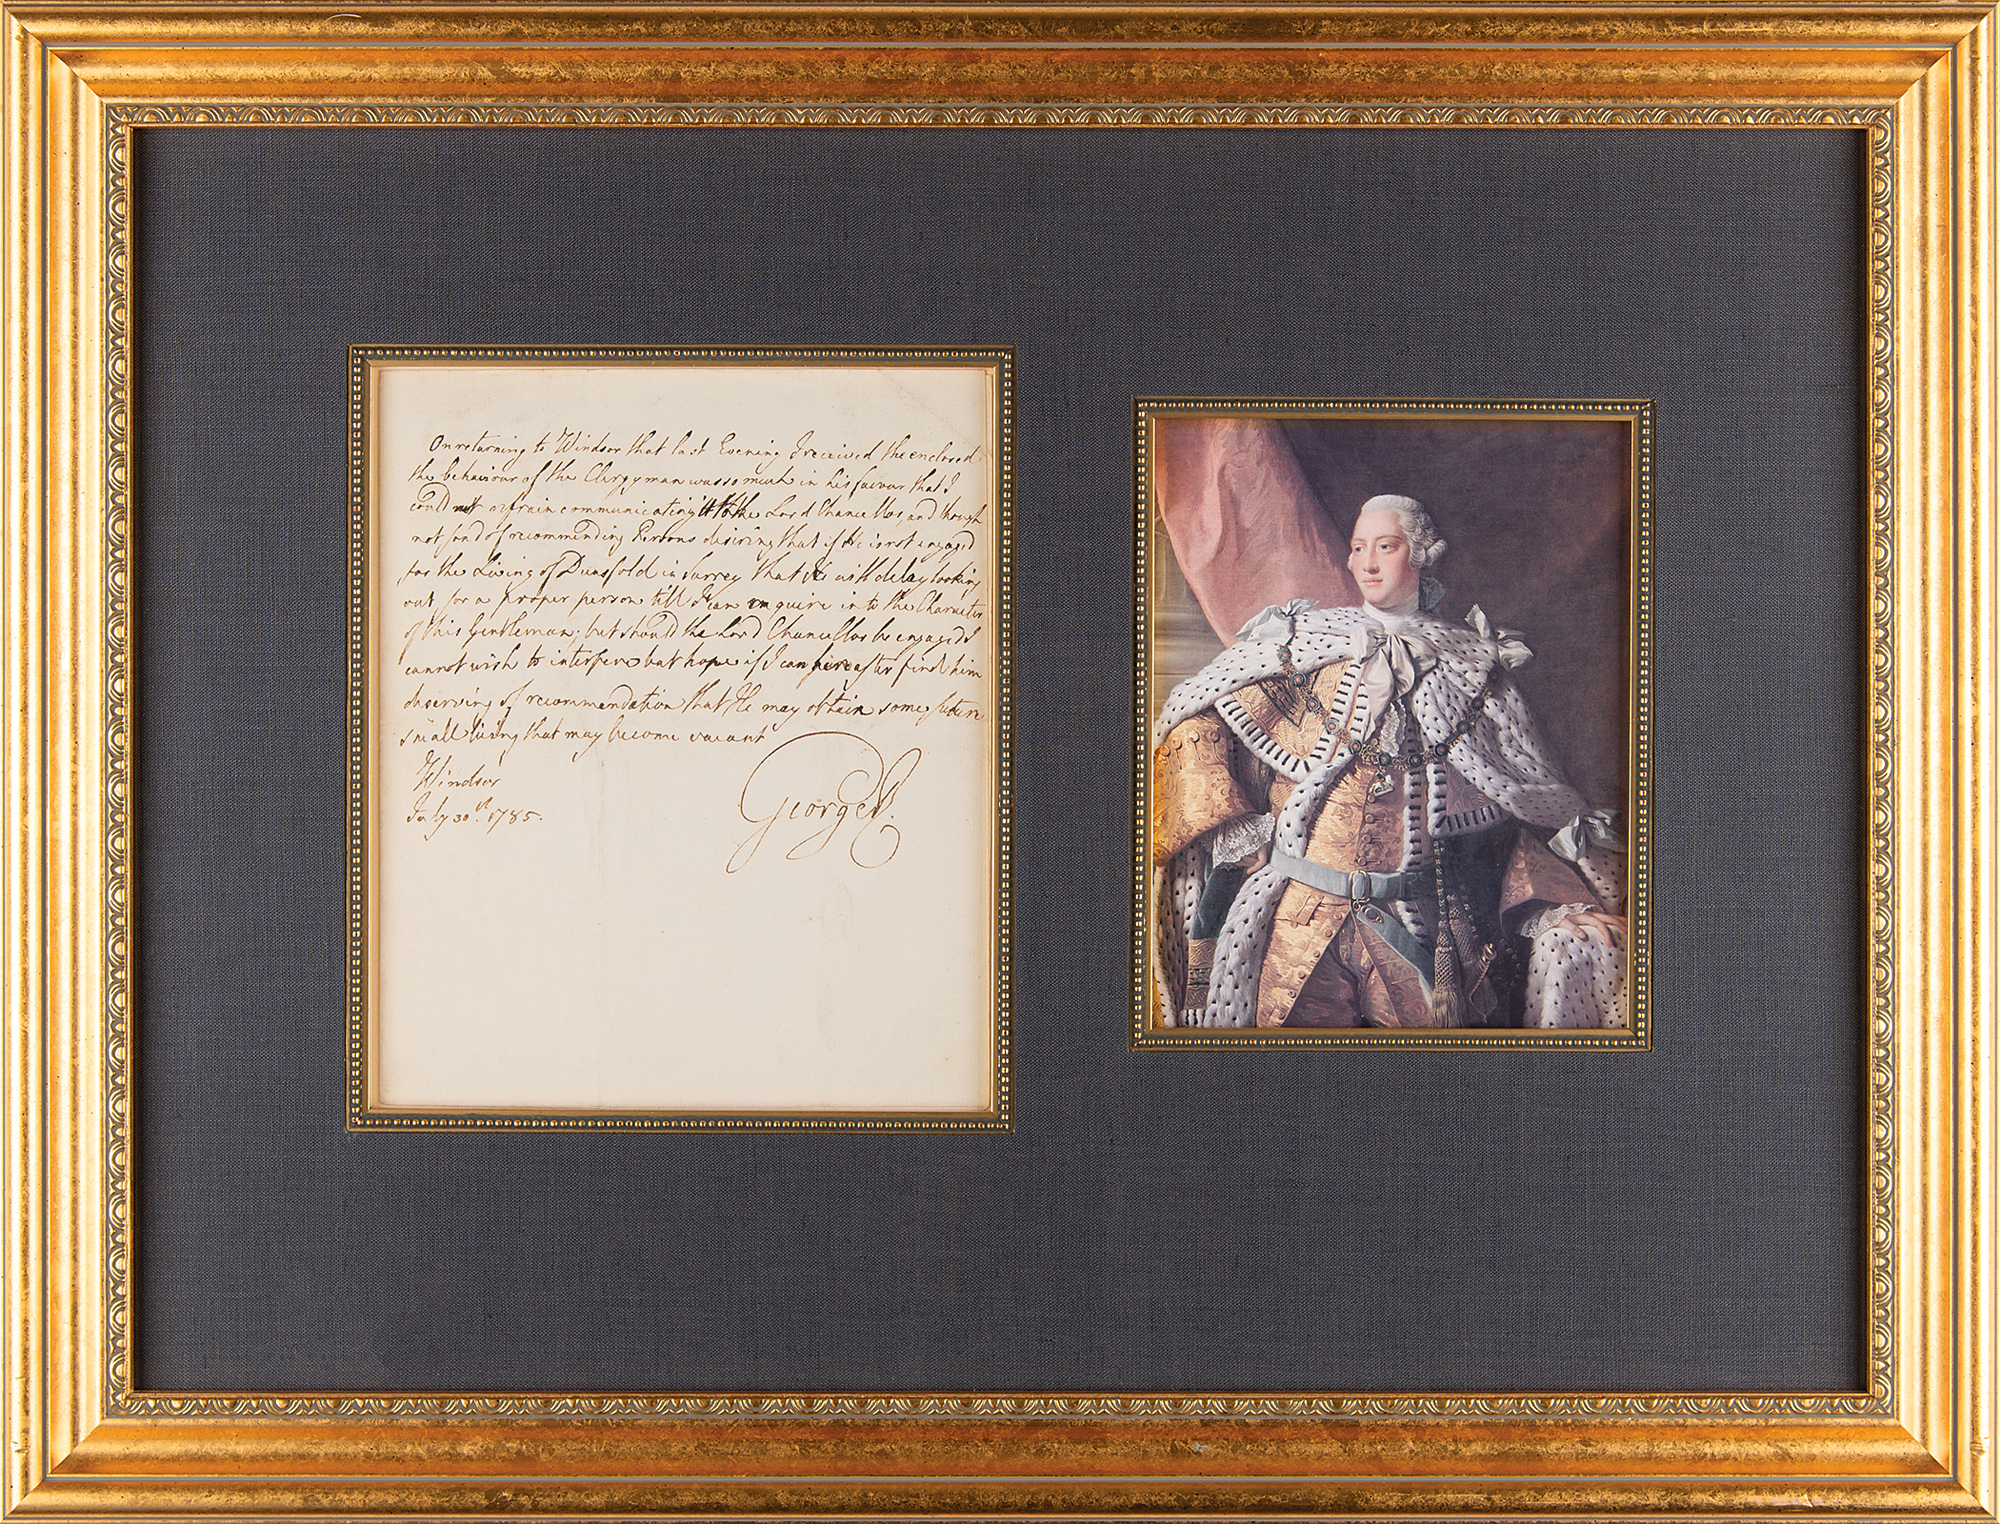 On returning to Windsor that last Evening I received the enclosed
the behaviour of the Clergyman was so much in his favour that I
could not refrain communicating it to the Lord Chancellor, and though
not fond of recommending Persons desiring that if He is not engaged
for the Living of Dunsfold in Surrey that He will delay looking
out for a proper person till I can enquire into the Character
of this Gentleman; but should the Lord Chancellor be engaged I
cannot wish to interfere but hope if I can hereafter find him
deserving of recommendation that He may obtain some future
small living that may become vacant
Windsor
July 30st. 1785.
George R.